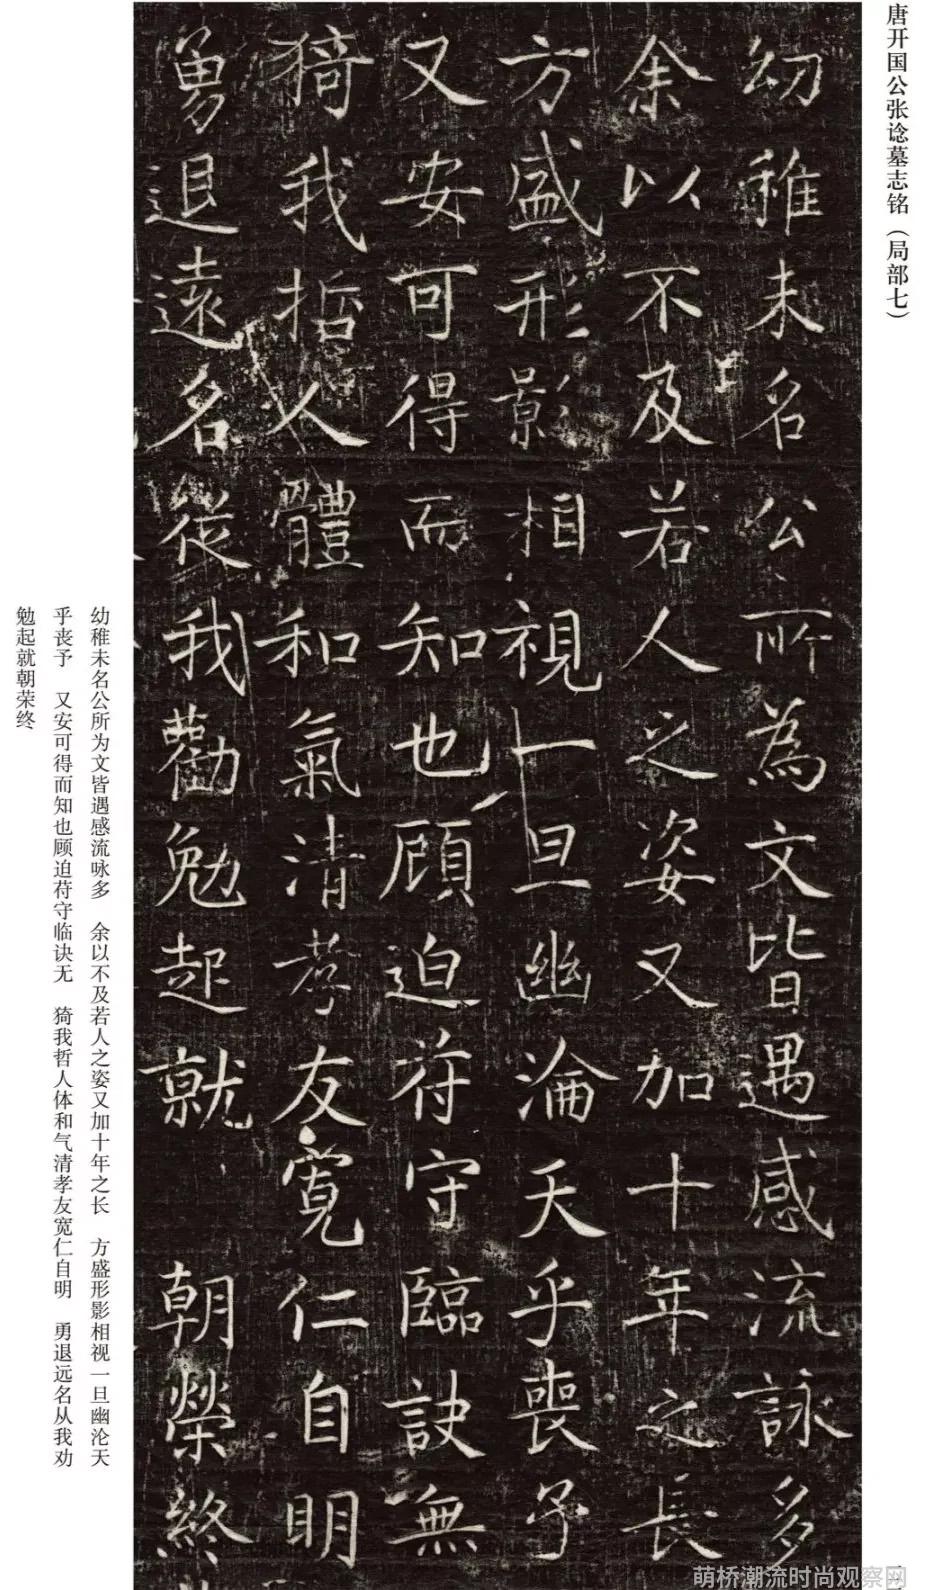 唐开国公张谂墓志铭（局部七）
幼稚未名公所為文皆遇感流詠多
余以不及若人之姿又加十年之長
方盛形影相視一旦幽淪天乎喪予
又安可得而知也顧迫苻守臨訣無
猗我哲人體和氣清孝友寬仁自明
勇退遠名從我勸勉起就朝榮終
幼稚未名公所为文皆遇感流咏多　余以不及若人之姿又加十年之长　方盛形影相视一旦幽沦天
乎丧予　又安可得而知也顾迫苻守临诀无　猗我哲人体和气清孝友宽仁自明　勇退远名从我劝
勉起就朝荣终
萌桥潮流时尚观察网